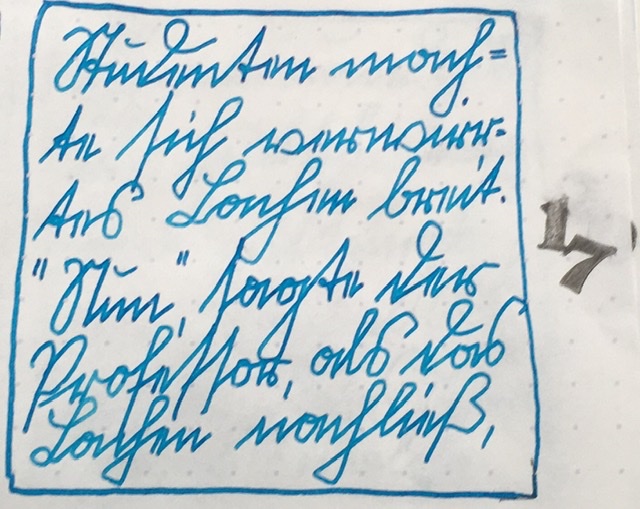 Studenten mach=
te sich verwirr=
tes Lachen breit.
"Nun", sagte der
Professor, als das
Lachen nachließ,
17